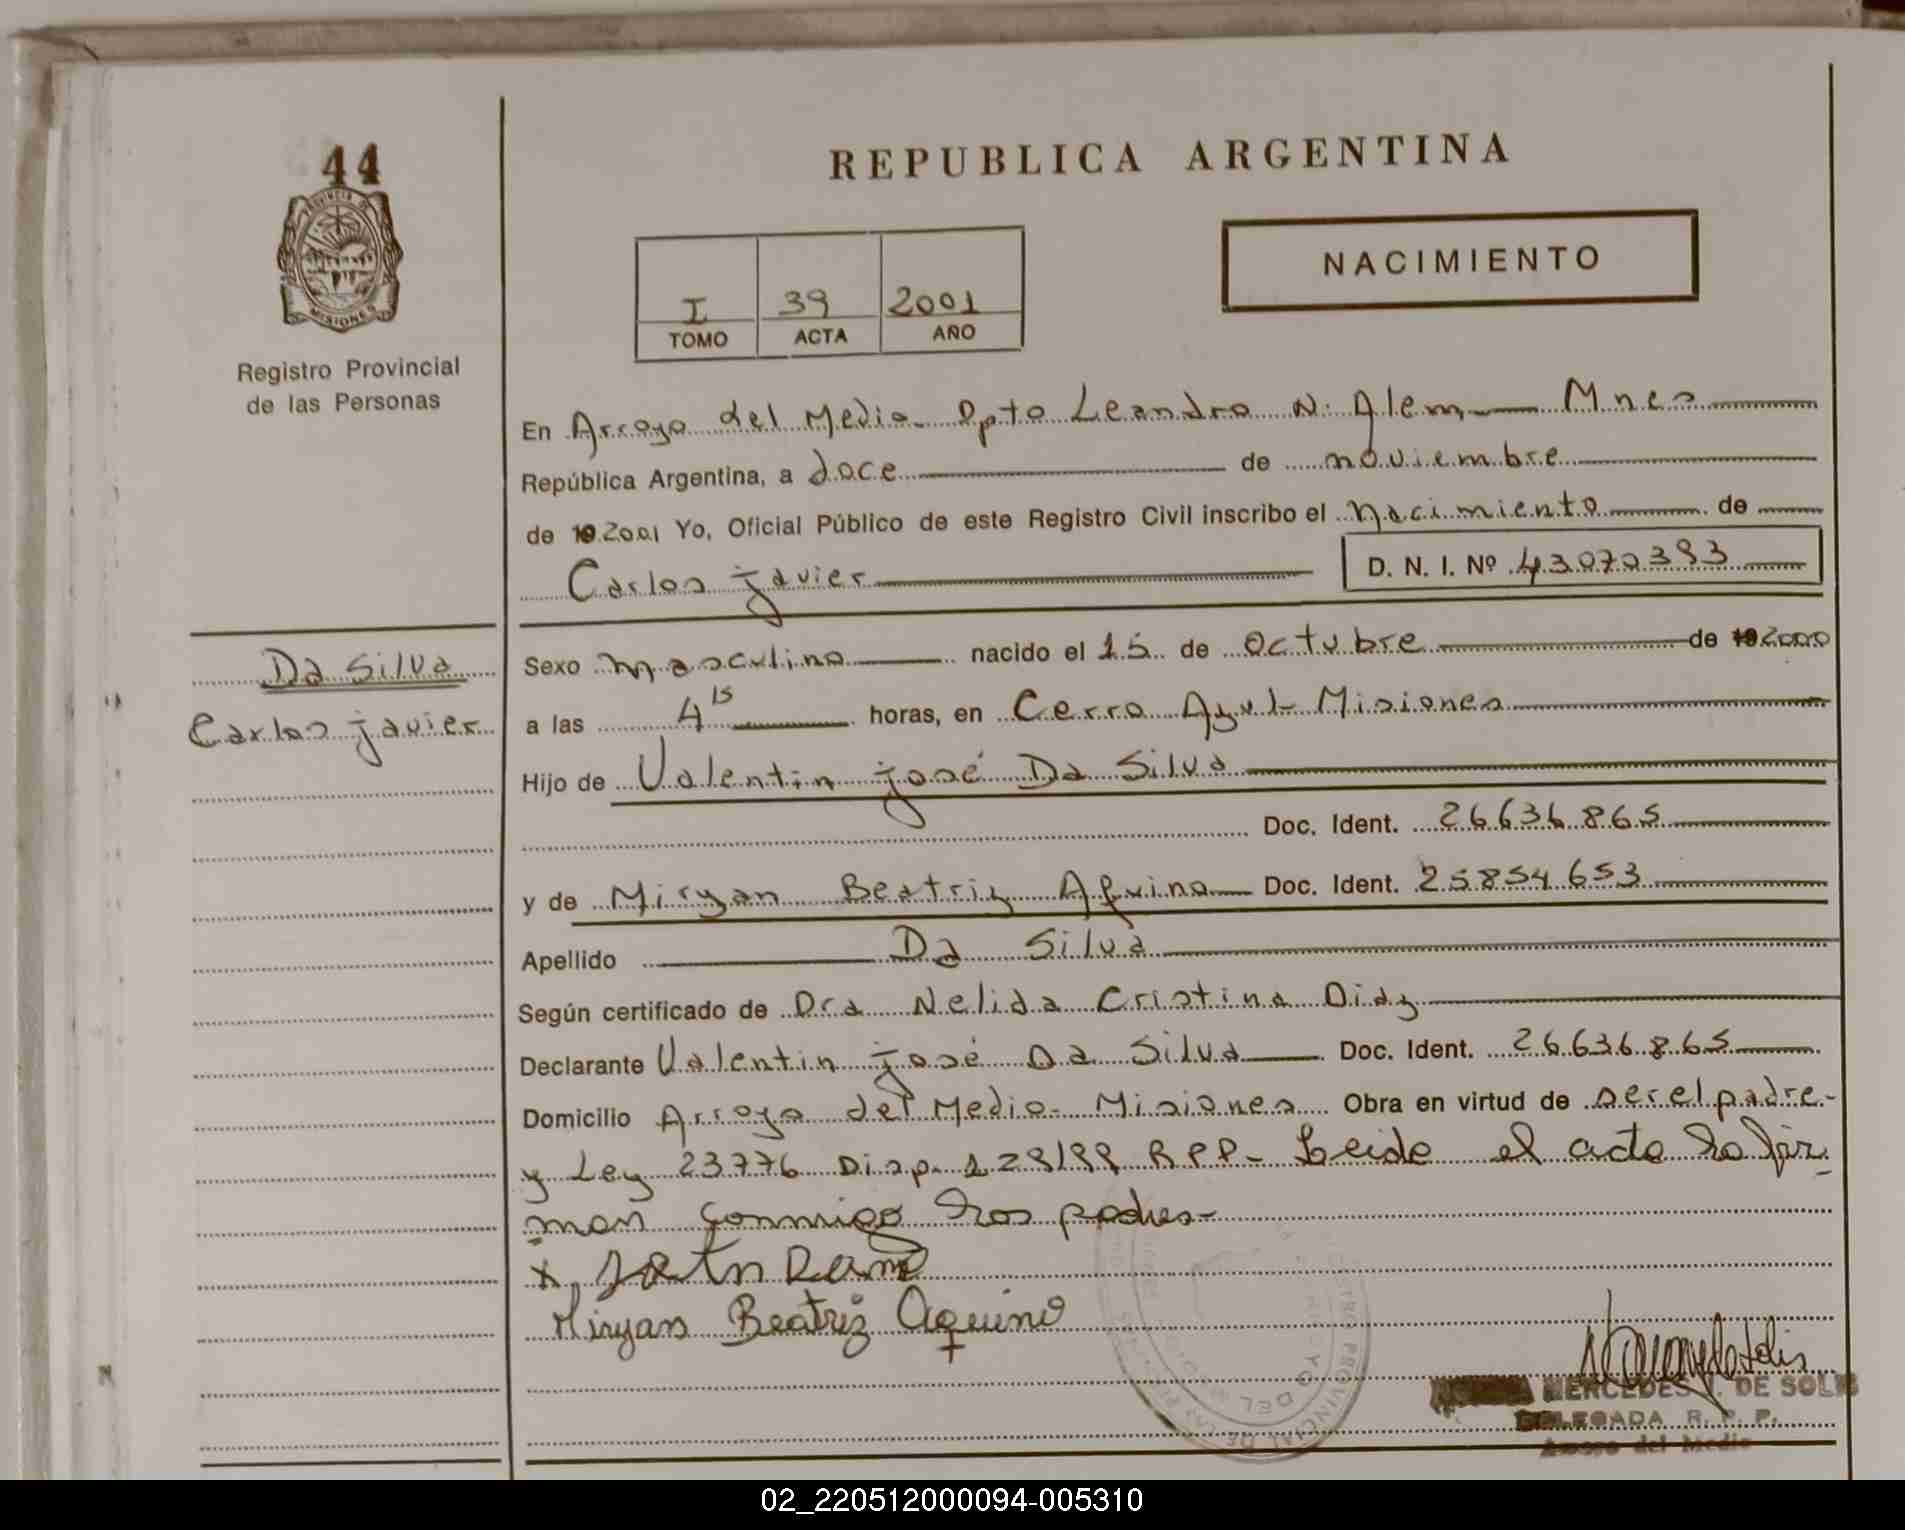 44
PROVINCIA DE
MISIONES
Registro Provincial
de las Personas
REPUBLICA ARGENTINA
NACIMIENTO
I 39 2001
TOMO ACTA AÑO
En Arroyo del Medio Dpto Leandro N. Alem Mnes
República Argentina, a doce de noviembre
de 192001 Yo, Oficial Público de este Registro Civil inscribo el nacimiento de
Carlos javier D. N. I. Nº 43070393
Da Silva
Carlos javier
Sexo masculino nacido el 15 de octubre de 192000
a las 4 15 horas, en Cerro Azul - Misiones
Hijo de Valentin josé Da Silva
Doc. Ident. 26636865
y de Miryan Beatriz Aquino Doc. Ident. 25854653
Apellido Da Silva
Según certificado de Dra Nelida Cristina Diaz
Declarante Valentin josé Da Silva Doc. Ident. 26.636.865
Domicilio Arroyo del Medio - Misiones Obra en virtud de ser el padre -
y Ley 23776 Disp. 129/99 RPP - Leida el acta la fir
man conmigo los padres -
x
Miryan Beatriz Aquino
MERCEDES DE SOLIS
DELEGADA R. P. P.
Arroyo del Medio
02_220512000094-005310